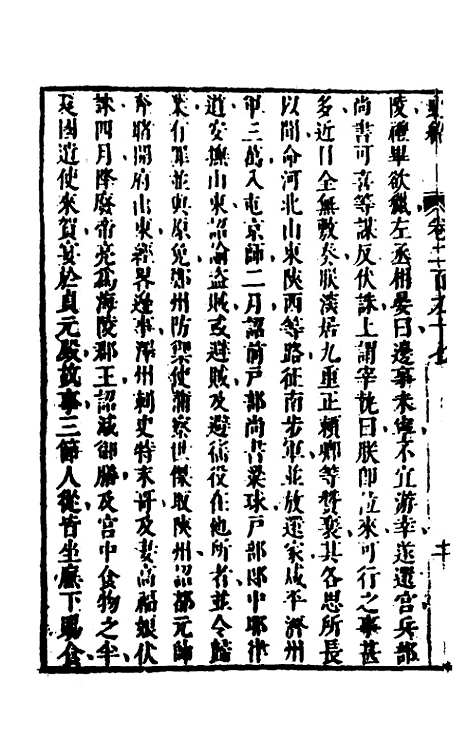 陵禮畢欲獵左丞相晏曰邊事未寧不宜游幸遂還宮兵部
尚書可喜等謀反伏誅上謂宰執曰朕即位來可行之事甚
多近日全無敷奏朕深居九重正賴卿等贊襄其各思所長
以聞命河北山東陝西等路征南步軍並放還家咸平濟州
軍三萬入屯京師二月詔前戶部尚書梁球戶部郎中耶律
道安撫山東詔諭盜賊或避賊及避徭役在他所者並令歸
業有罪並與原免鄭州防禦使蒲察世傑取陝州詔都元帥
奔睹開府山東經略邊事澤州刺史特末哥及妻高福娘伏
誅四月降廢帝亮為海陵郡王詔減御膳及宮中食物之半
夏國遣使來賀宴於貞元殿故事三節人從皆坐廡下賜食
卷二百九十七